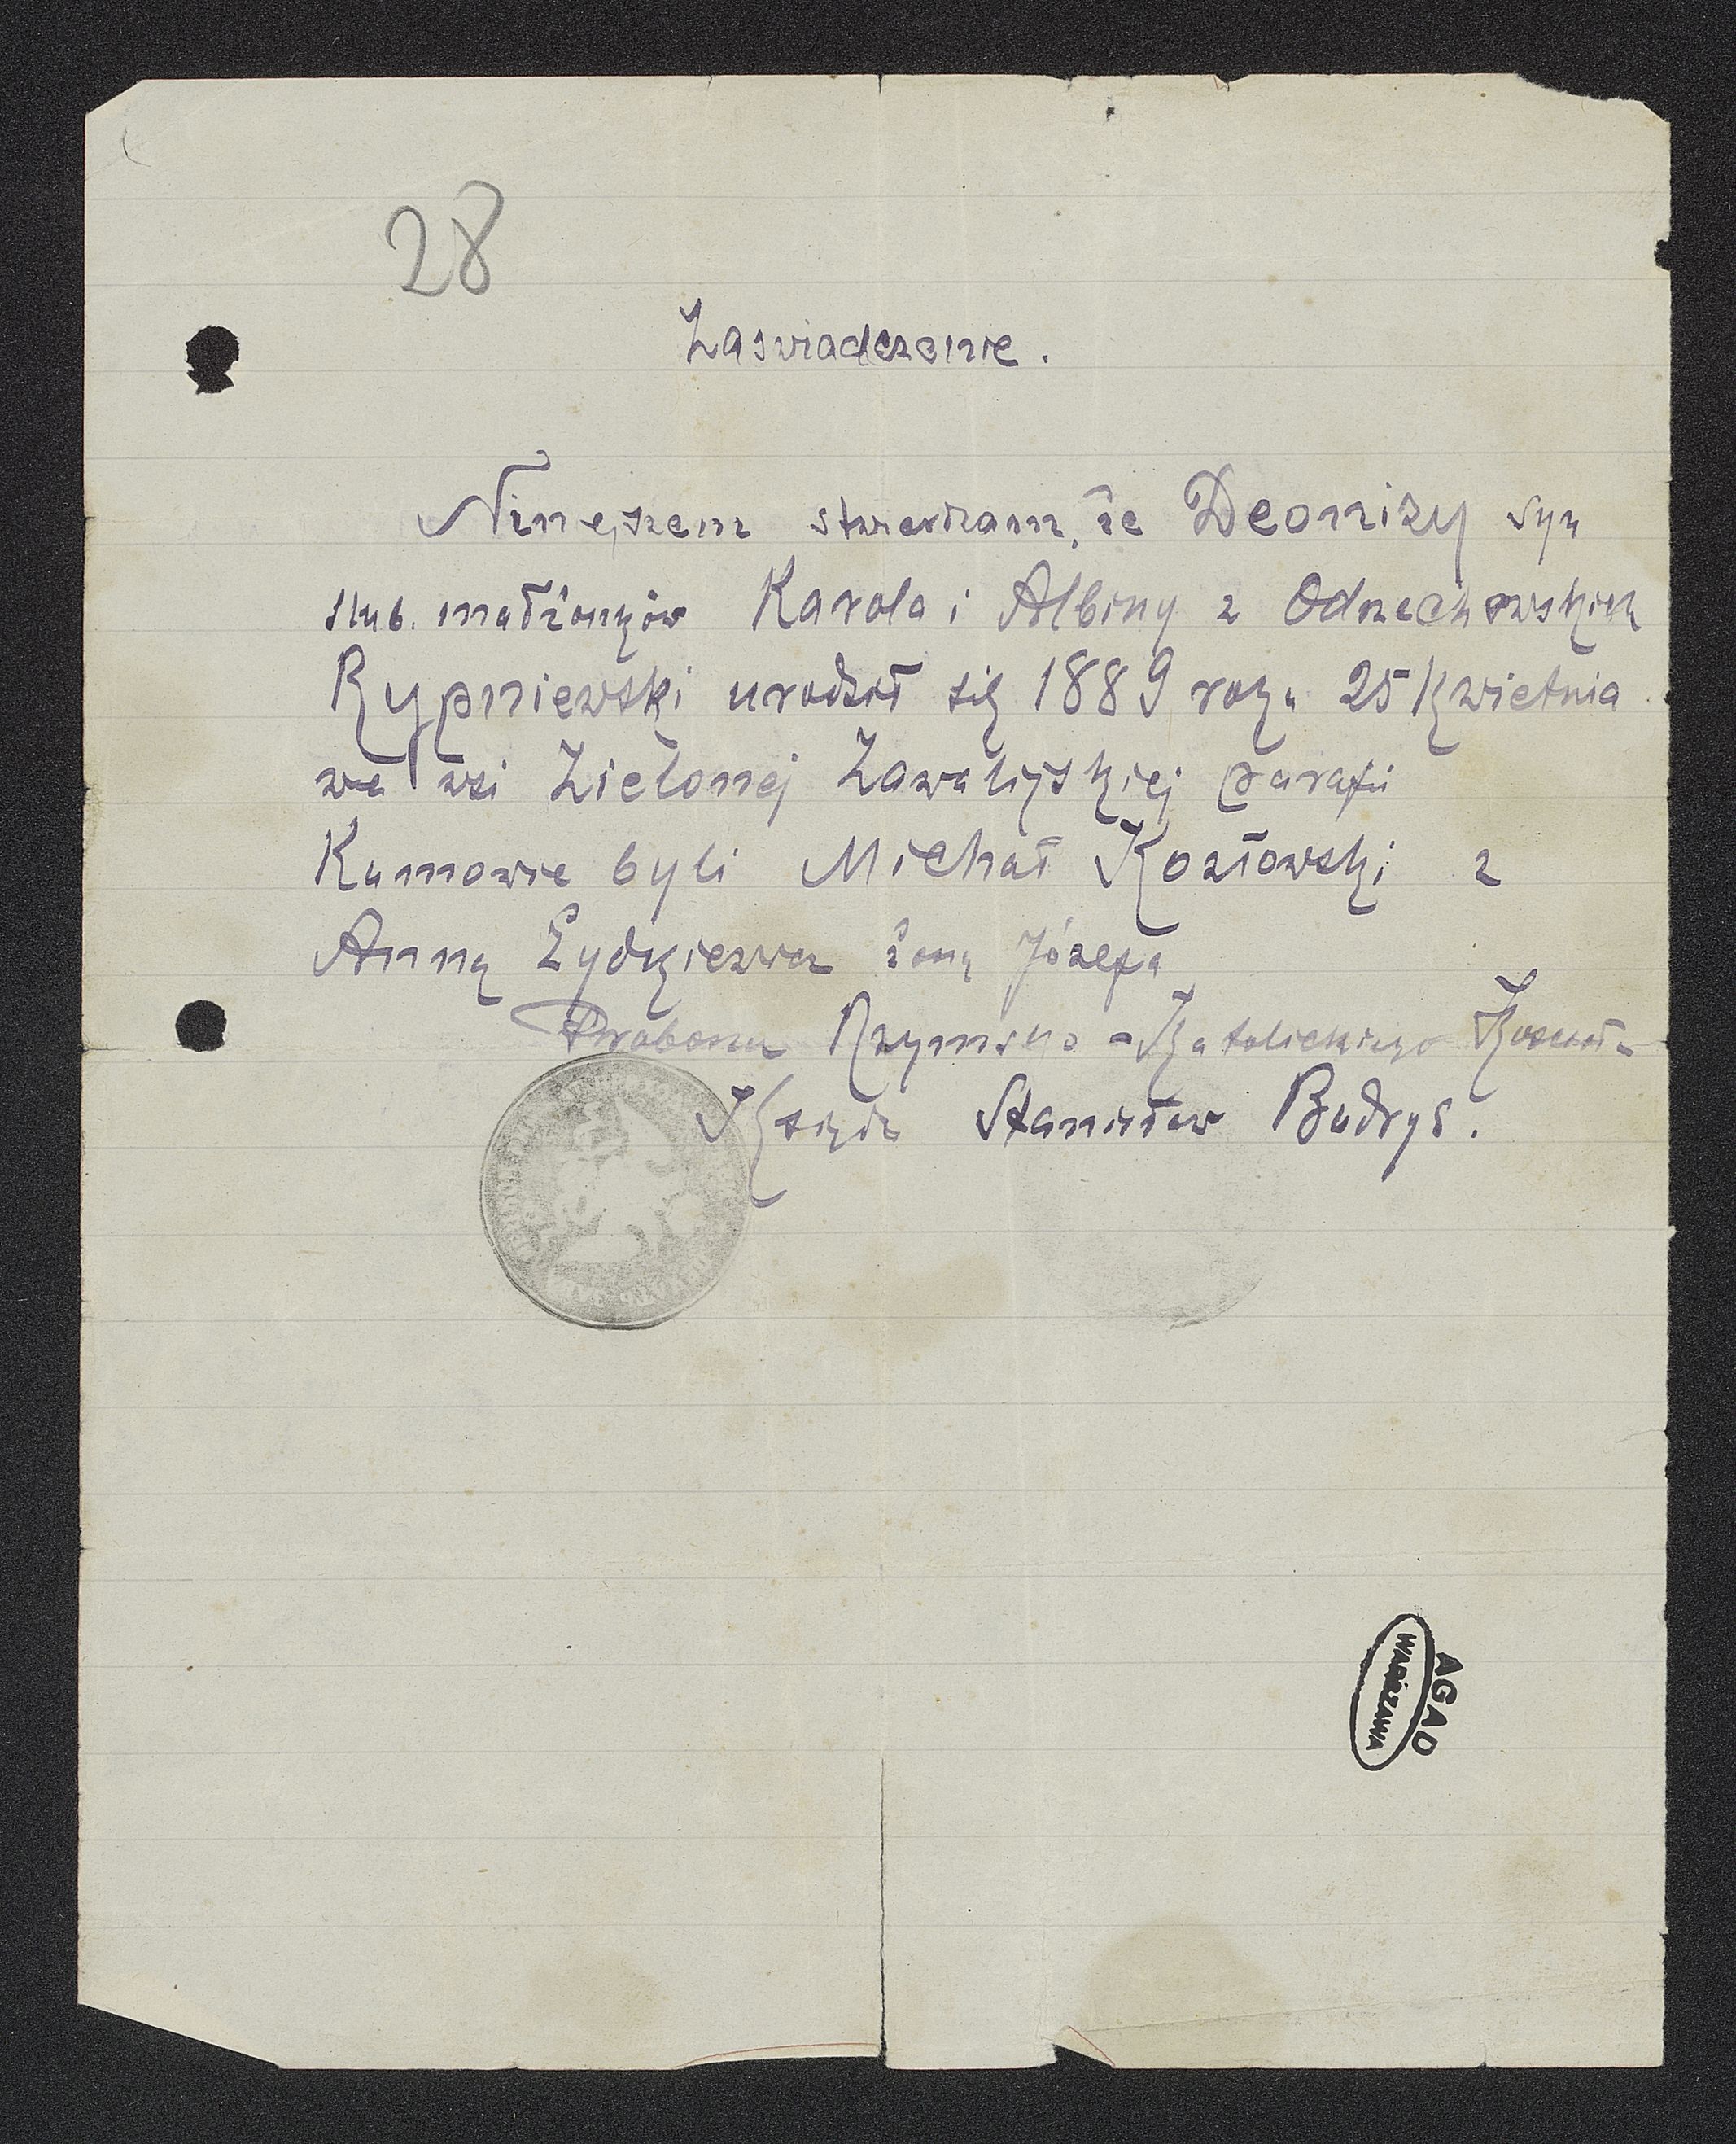 28
Zaswiadczenie.
Ninejszem stwierdzam, że Deonizy syn
slub. małżonków Karola i Albiny z Odrzechowskich
Rypniewski urodził się 1889 roku 25 kwietnia
we wsi Zielonej parafii
Kumowie byli Michał Kozłowski z
Anną żoną Józefa
Proboszcz Rzymsko-Katolickiego Kościoła
Ksiądz Stanisław Budrys.
AGAD
WARSZAWA